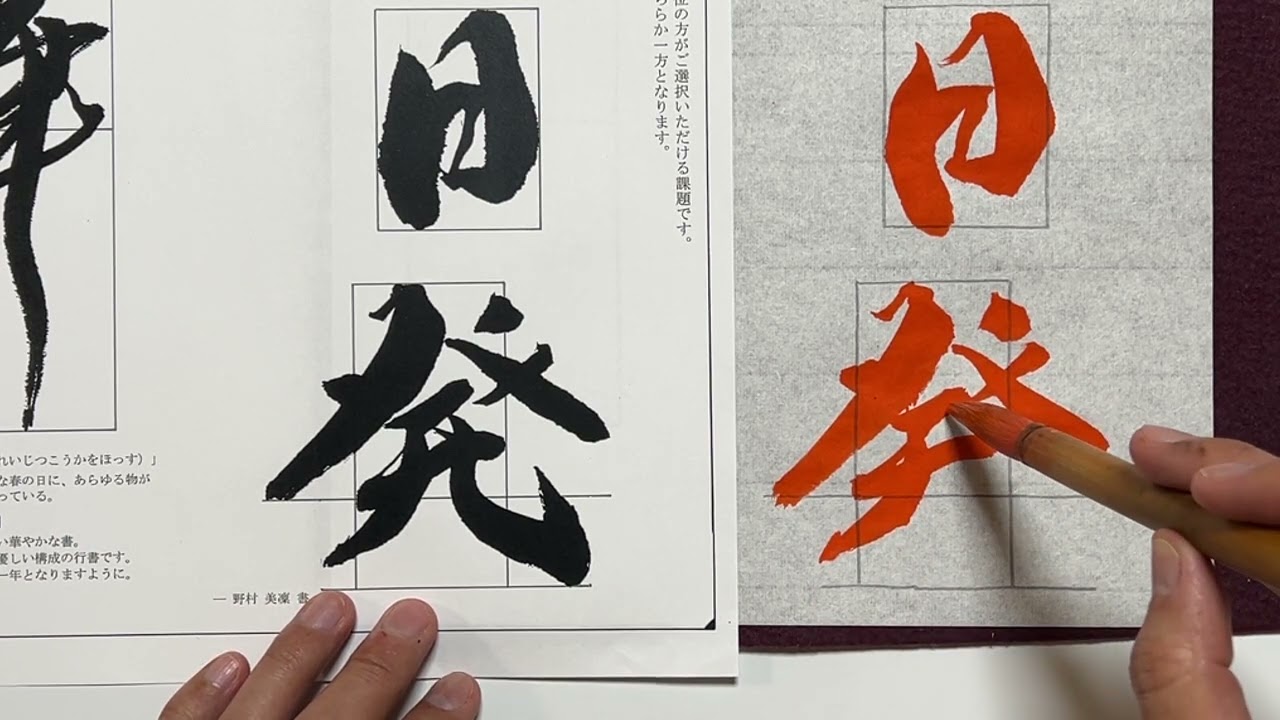 位の方がご選択いただける課題です。
ちらか一方となります。
日発
れいじつこうかをほっす）」
な春の日に、あらゆる物が
っている。
い華やかな書。
優しい構成の行書です。
一年となりますように。
― 野村 美凜 書
日発